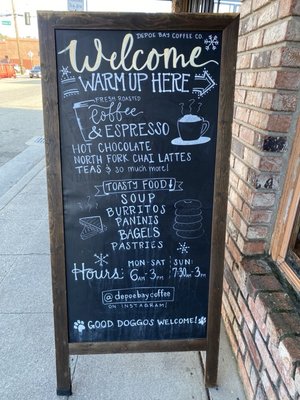 DEPOE BAY COFFEE CO.
Welcome
WARM UP HERE
FRESH ROASTED
Coffee
& ESPRESSO
HOT CHOCOLATE
NORTH FORK CHAI LATTES
TEAS & so much more!
TOASTY FOOD!
SOUP
BURRITOS
PANINIS
BAGELS
PASTRIES
Hours:
MON-SAT:
6AM-3PM
SUN:
7:30AM-3PM
@depoebaycoffee
ON INSTAGRAM!
GOOD DOGGOS WELCOME!